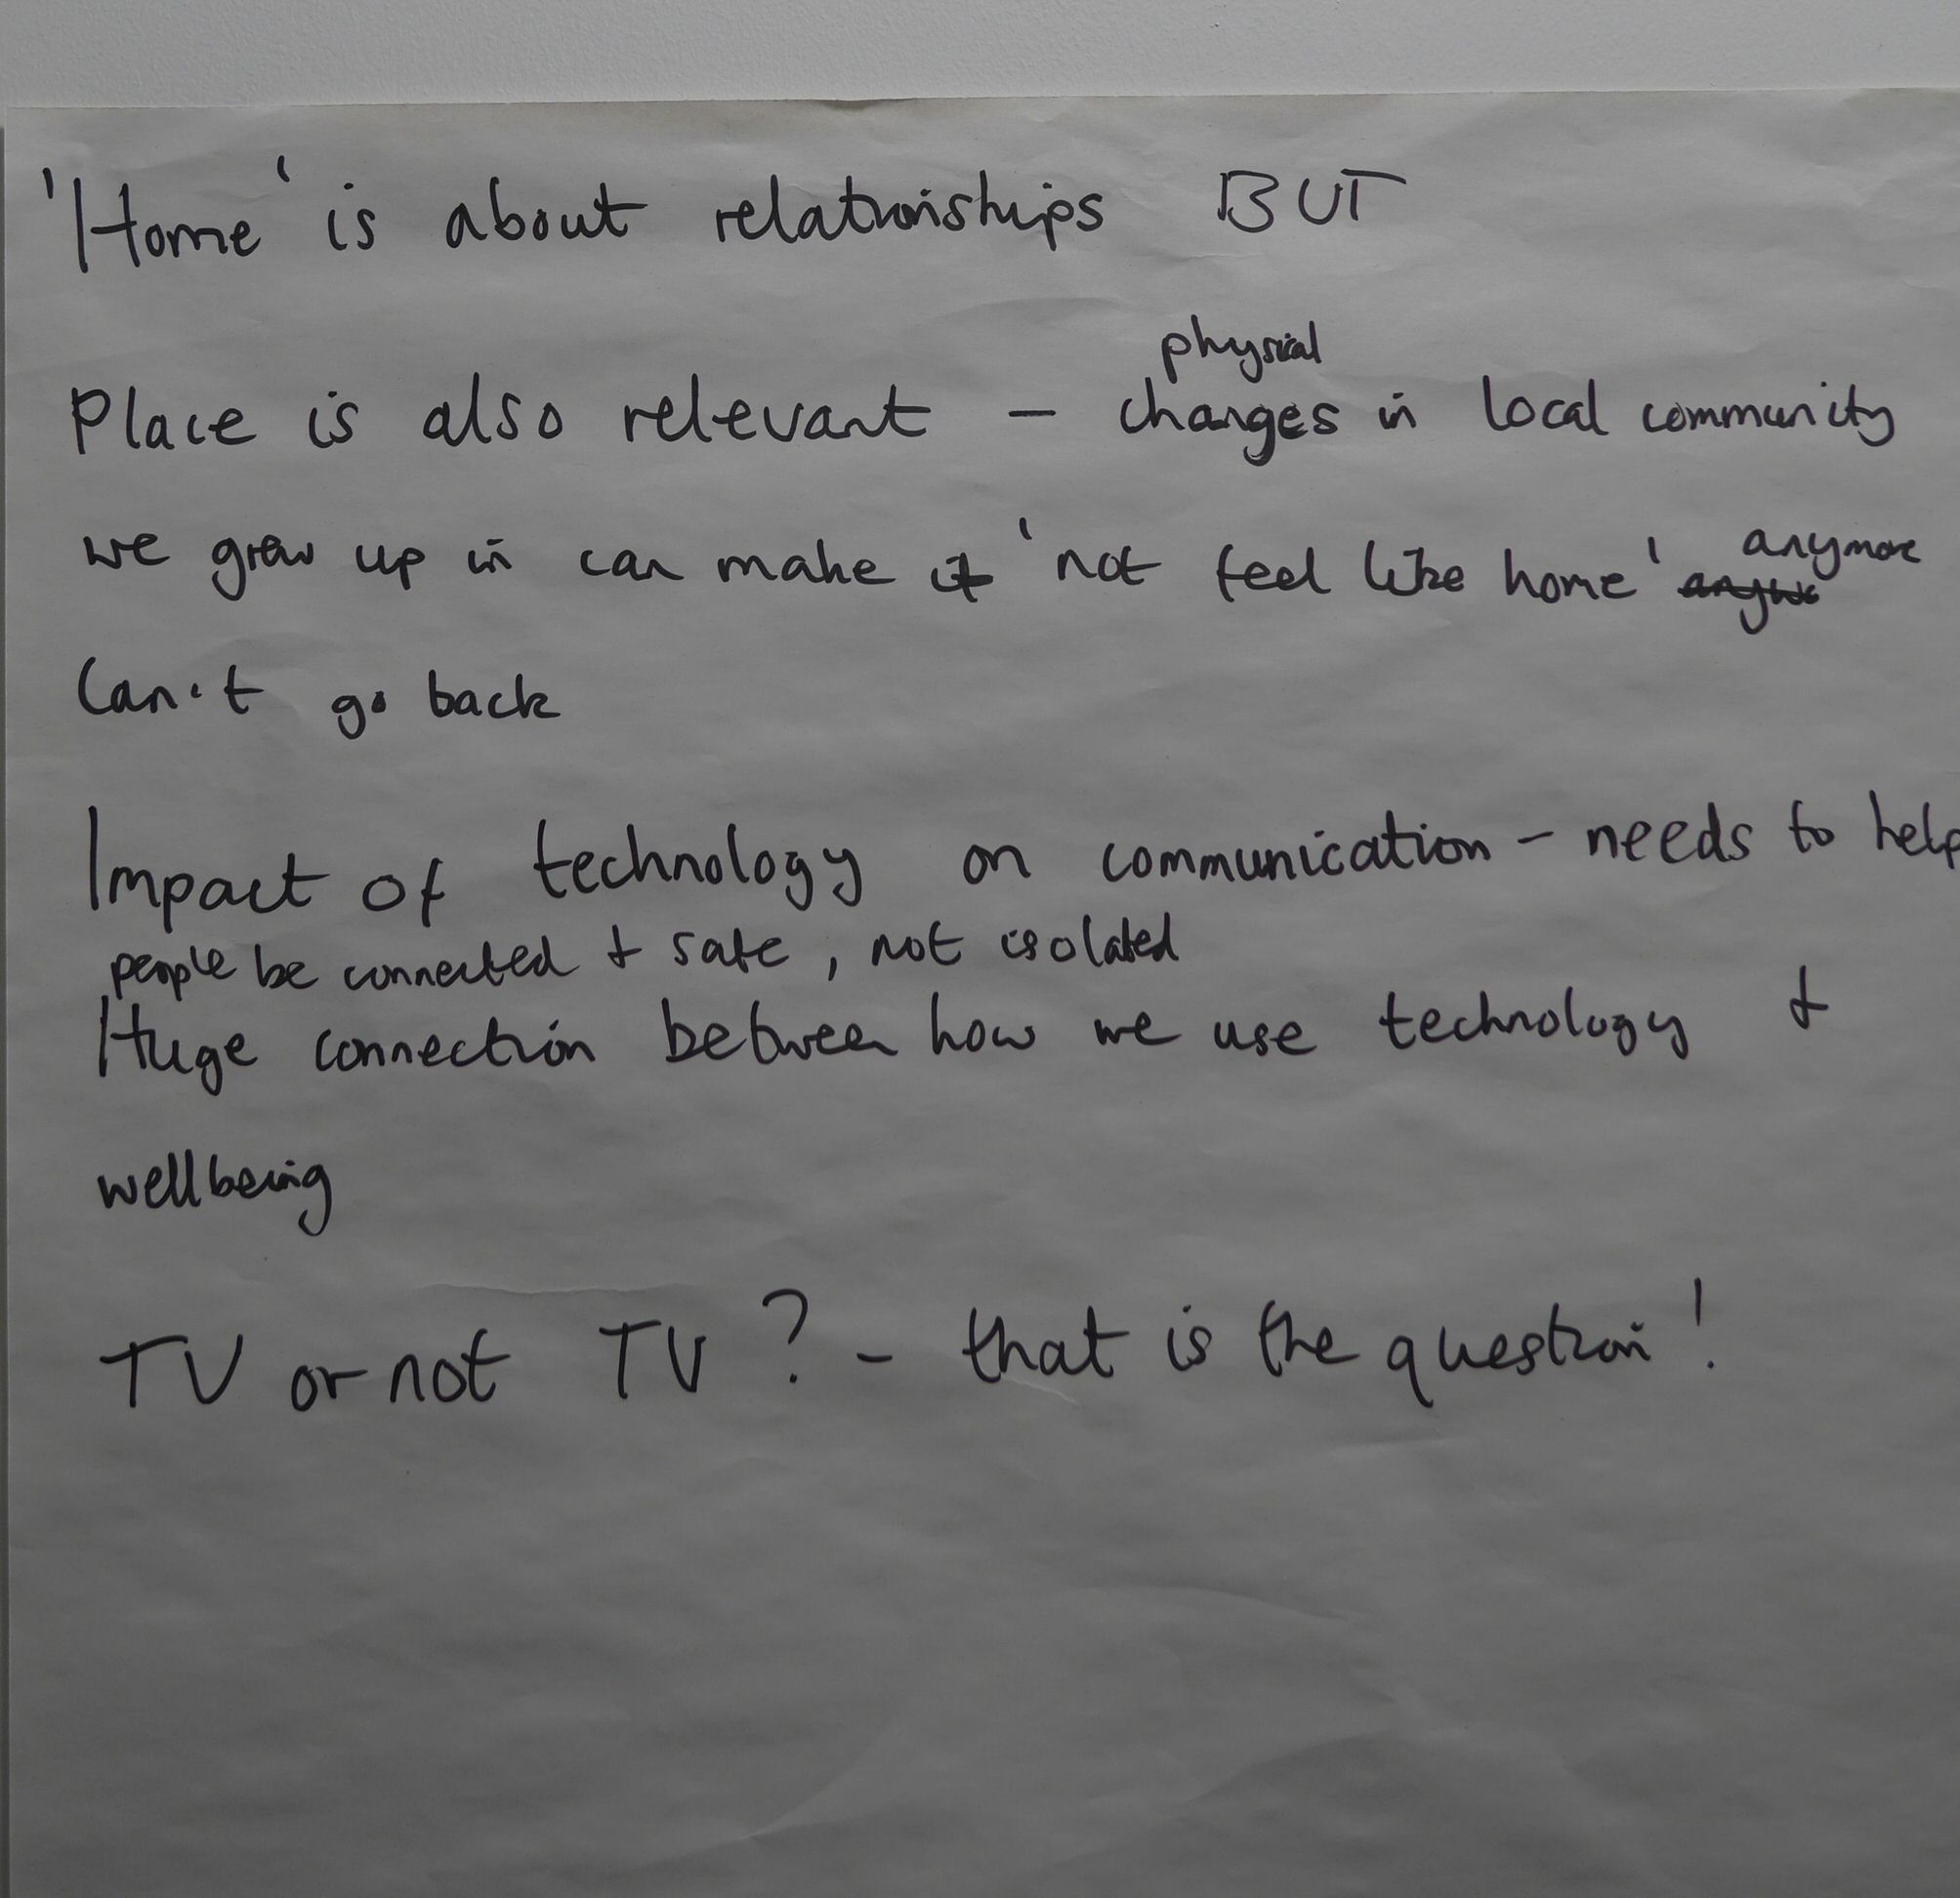 'Home' is about relationships BUT
physical
Place is also relevant – changes in local community
anymore
we grew up in can make it 'not feel like home'
Can't go back
Impact of technology on communication – needs to help
people be connected & safe, not isolated
Huge connection between how we use technology &
wellbeing
TV or not TV? – that is the question!